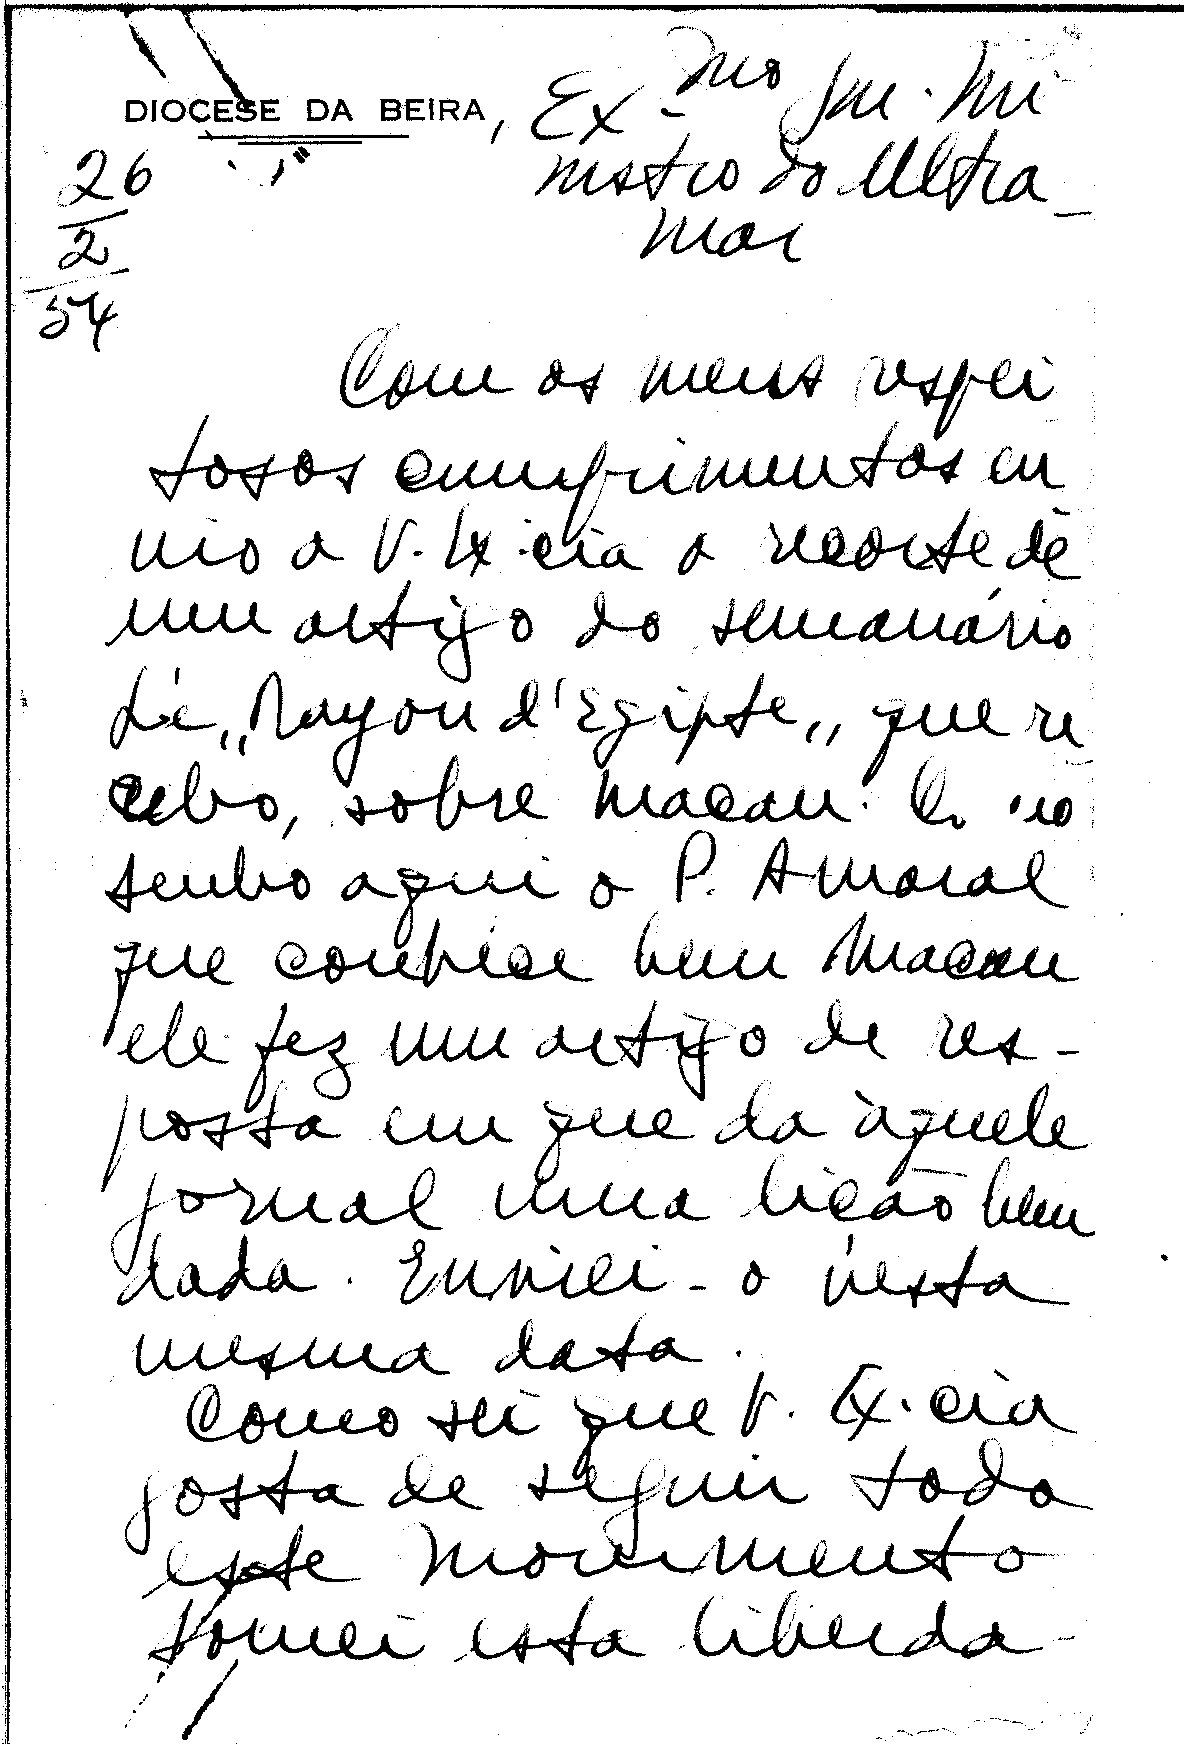 DIOCESE DA BEIRA, Ex.mo Snr. Mi
nistro do Ultra-
mar
26
2
54
Com os meus respei
tosos cumprimentos en
vio a V. Ex.cia o recorte de
um artigo do semanário
Le „Rayon d'Egipte„ que re
cebo, sobre Macau. Co mo
tenho aqui o P. Amaral
que conhece bem Macau
ele fez um artigo de res-
posta em que da àquele
jornal uma lição bem
dada. Enviei-o nesta
mesma data.
Como sei que V. Ex.cia
gosta de seguir todo
este movimento
tomei esta liberda-